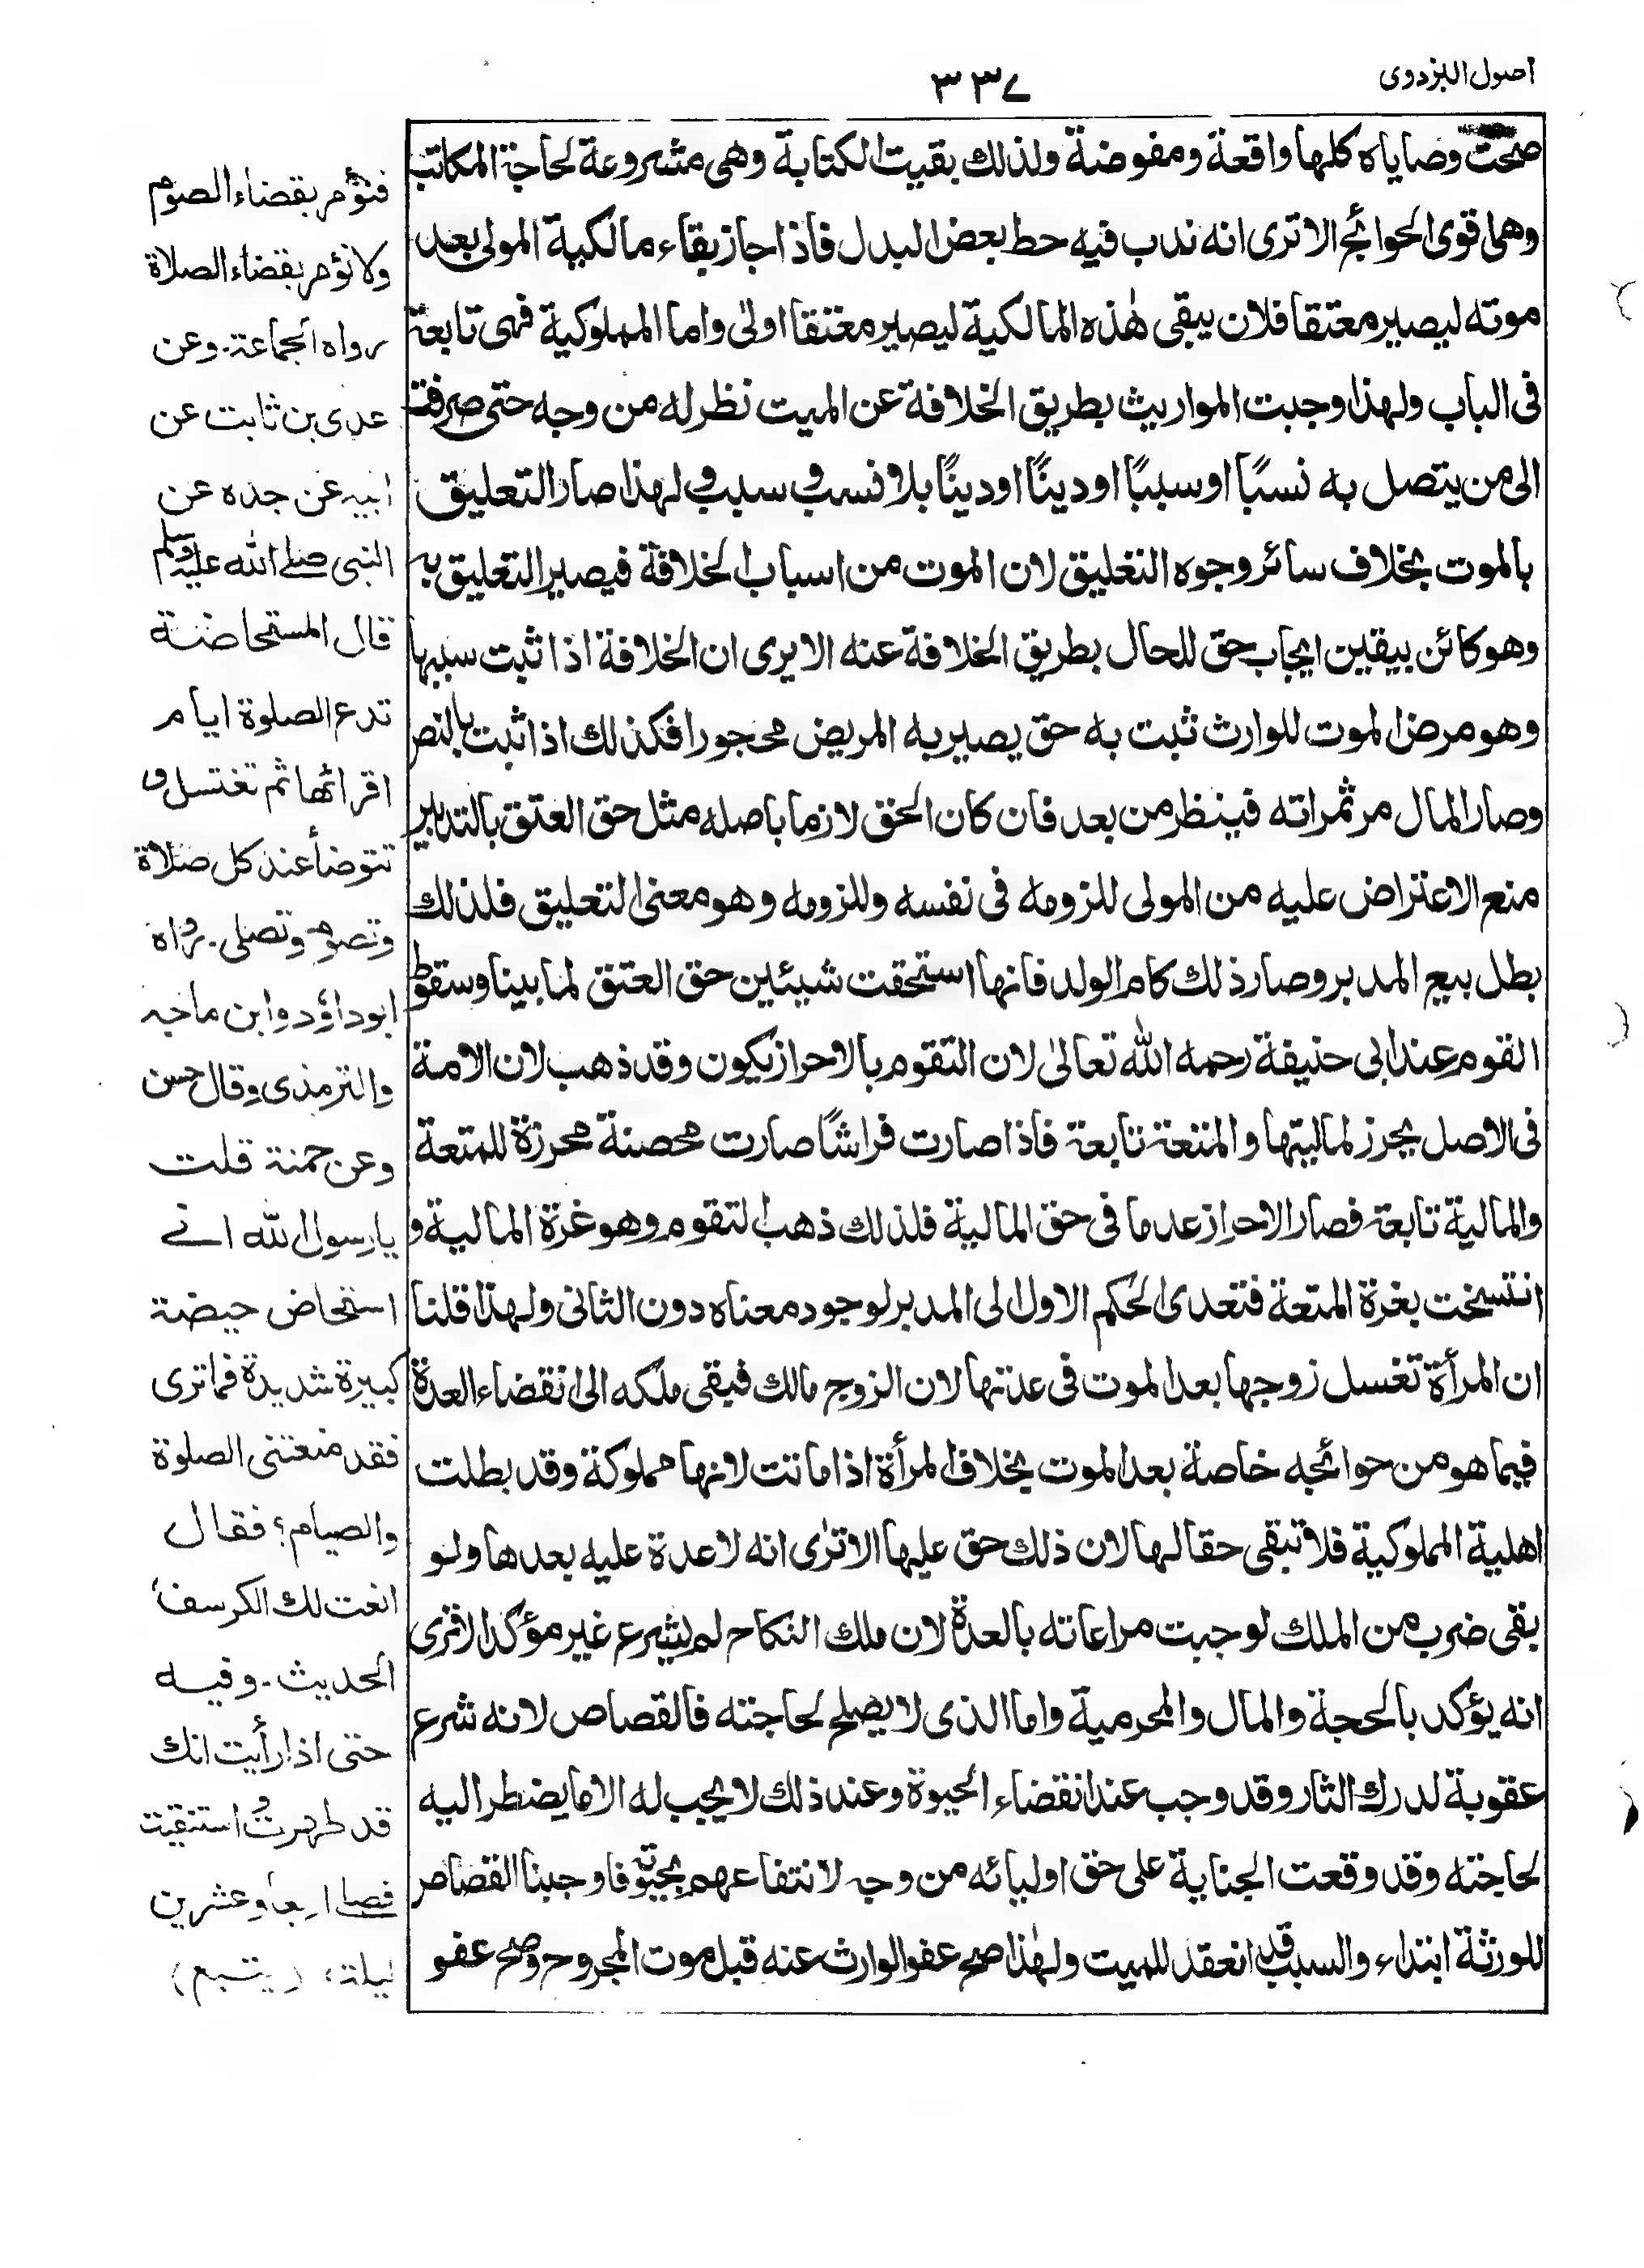 اصول البزدوی
۳۳۷
صحت وصاياه كلها واقعة ومفوضة ولذلك بقيت الكتابة وهى مشروعة لحاجة المكاتب
وهى اقوى الحوائج الا ترى انه ندب فيه حط بعض البدل فاذا جاز بقاء مالكية المولى بعد
موته ليصير معتقا فلان يبقى هٰذه المالكية ليصير معتقا اولىٰ واما المملوكية فهى تابعة
فى الباب ولهذا وجبت المواريث بطريق الخلافة عن الميت نظر له من وجه حتى صرفت
الى من يتصل به نسبًا او سببًا او دينًا او دينًا بلا نسب و سبب ولهذا صار التعليق
بالموت بخلاف سائر وجوه التعليق لان الموت من اسباب الخلافة فيصير التعليق به
وهو كائن بيقين ايجاب حق للحال بطريق الخلافة عنه الا يرى ان الخلافة اذا ثبت سببها
وهو مرض الموت للوارث ثبت به حق يصير به المريض محجورا فكذلك اذا ثبت بالنص
وصار المال من ثمراته فينظر من بعد فان كان الحق لازما باصله مثل حق العتق بالتدبير
منع الاعتراض عليه من المولى للزومه فى نفسه وللزومه وهو معنى التعليق فلذلك
بطل بيع المدبر وصار ذلك كام الولد فانها استحقت شيئين حق العتق لما بينا وسقوط
القوم عند ابى حنيفة رحمه الله تعالىٰ لان التقوم بالاحراز يكون وقد ذهب لان الامة
فى الاصل يحرز لماليتها والمتعة تابعة فاذا صارت فراشًا صارت محصنة محرزة للمتعة
والمالية تابعة فصار الاحراز عدما فى حق المالية فلذلك ذهب التقوم وهو غرة المالية و
انتسخت بغرة المتعة فتعدى الحكم الاول الى المدبر لوجود معناه دون الثانى ولهذا قلنا
ان المرأة تغسل زوجها بعد الموت فى عدتها لان الزوج مالك فيقى ملكه الى انقضاء العدة
فيما هو من حوائجه خاصة بعد الموت بخلاف المرأة اذا ماتت لانها مملوكة وقد بطلت
اهلية المملوكية فلا تبقى حقا لها لان ذلك حق عليها الا ترٰى انه لا عدة عليه بعدها ولو
بقى ضرب من الملك لوجبت مراعاته بالعدة لان ملك النكاح لم يشرع غير مؤكد الا ترى
انه يؤكد بالحجة والمال والمحرمية واما الذى لا يصلح لحاجته فالقصاص لانه شرع
عقوبة لدرك الثار وقد وجب عند انقضاء الحيوة وعند ذلك لا يجب له الا ما يضطر اليه
لحاجته وقد وقعت الجناية على حق اوليائه من وجه لانتفاعهم بحيوته فاوجبنا القصاص
للورثة ابتداء والسبب قد انعقد للميت ولهٰذا صح عفو الوارث عنه قبل موت المجروح وصح عفو
فنؤمر بقضاء الصوم
ولا نؤمر بقضاء الصلاة
رواه الجماعة۔ وعن
عدى بن ثابت عن
ابيه عن جده عن
النبى صلے الله عليه وسلم
قال المستحاضة
تدع الصلوة ايام
اقرائها ثم تغتسل و
تتوضأ عند كل صلاة
وتصوم وتصلى۔ رواه
ابوداؤد وابن ماجه
والترمذى وقال حسن
وعن حمنة قلت
يا رسول الله انے
استحاض حيضة
كبيرة شديدة فما ترى
فقد منعتنى الصلوة
والصيام؟ فقال
انعت لك الكرسف،
الحديث۔ وفيه
حتى اذا رأيت انك
قد طهرت و استنقيت
فصلے اربعا وعشرين
ليلة، (يتبع)